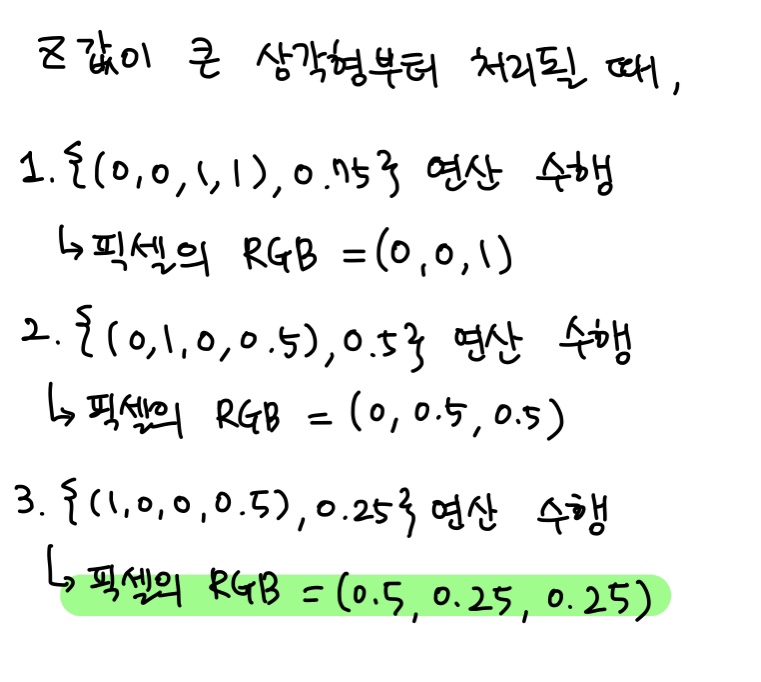 Z값이 큰 삼각형부터 처리될 때,
1. {(0,0,1,1), 0.75} 연산 수행
↳ 픽셀의 RGB = (0,0,1)
2. {(0,1,0,0.5), 0.5} 연산 수행
↳ 픽셀의 RGB = (0, 0.5, 0.5)
3. {(1,0,0,0.5), 0.25} 연산 수행
↳ 픽셀의 RGB = (0.5, 0.25, 0.25)